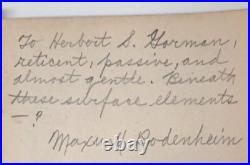 To Herbert S. Gorman,
reticent, passive, and
almost gentle. Beneath
these surface elements
— ?
Maxwell Bodenheim